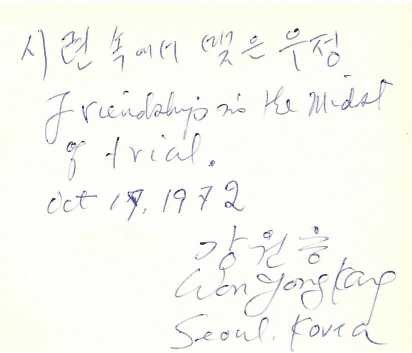 시련 속에서 맺은 우정
Friendship in the midst
of trial.
Oct 17, 1972
강원용
Won Yong Kang
Seoul. Korea